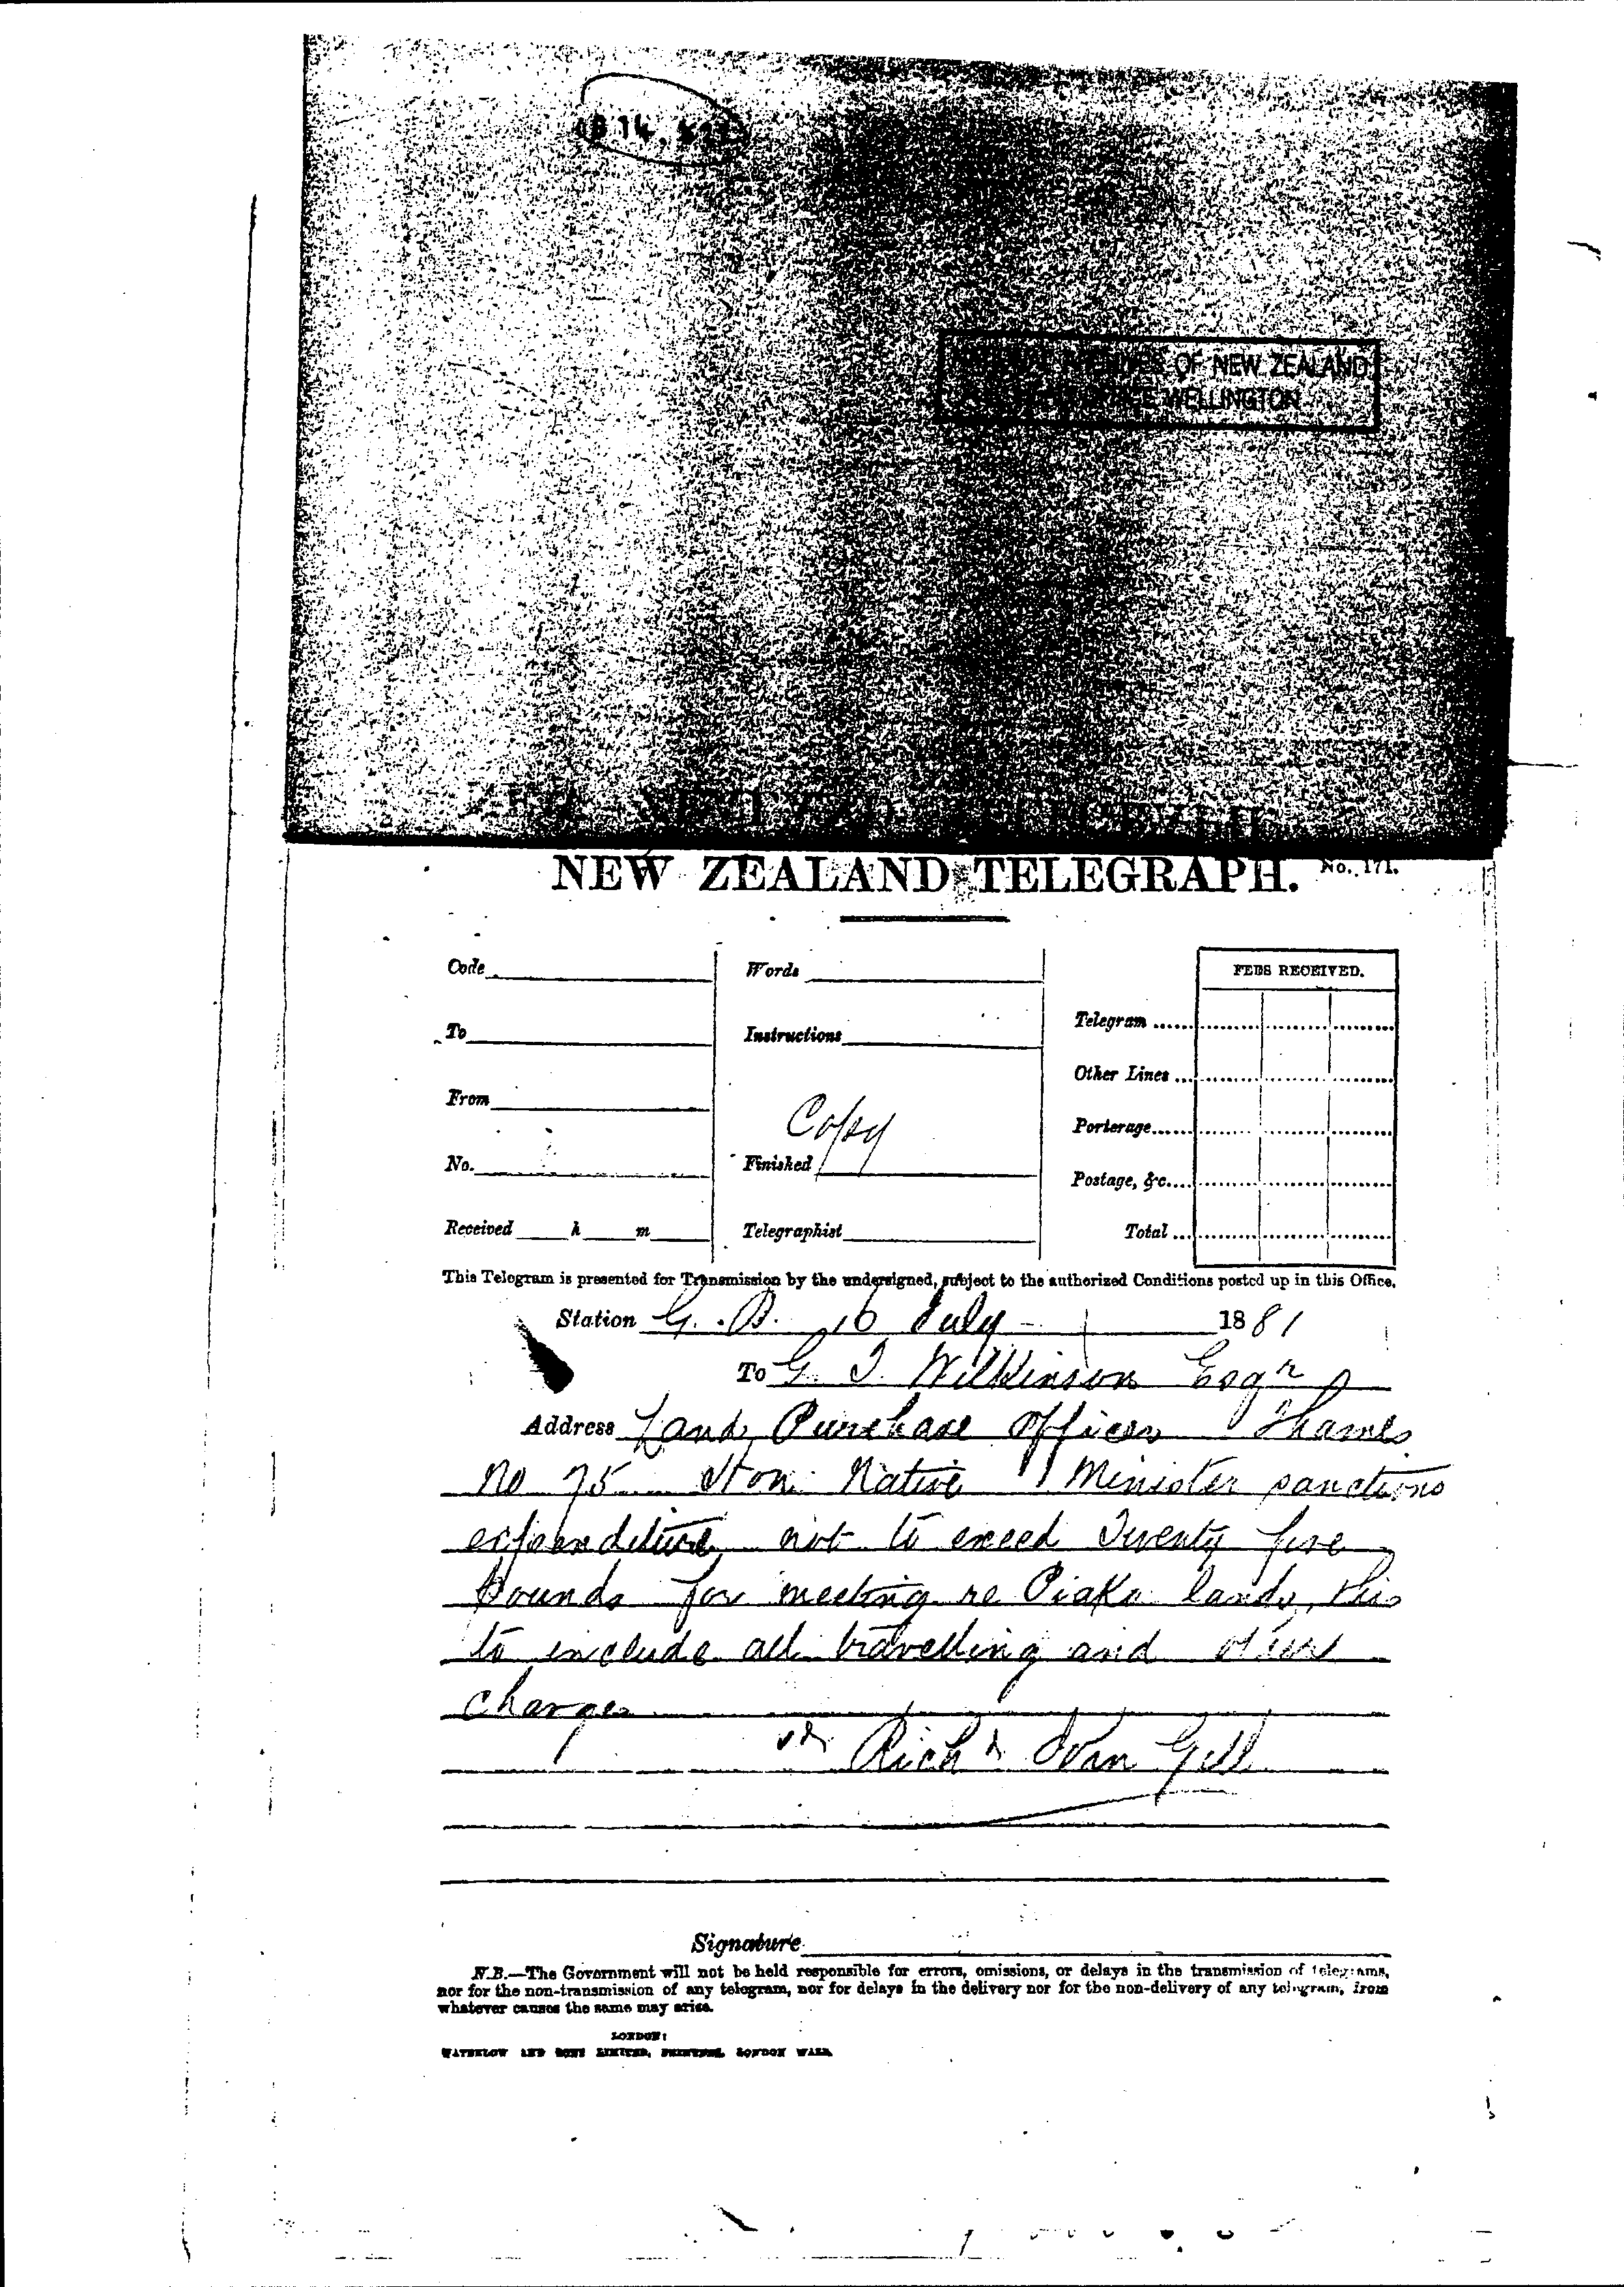 OF NEW ZEALAND
WELLINGTON
NEW ZEALAND TELEGRAPH. No. 171.
Code Words FEES RECEIVED.
To Instructions Telegram ......
Other Lines ...
From Copy Porterage......
No. Finished Postage, &c....
Received h m Telegraphist Total ...
This Telegram is presented for Transmission by the undersigned, subject to the authorized Conditions posted up in this Office.
Station G. B. 16 July 1881
To G. T. Wilkinson Esqr
Address Land Purchase Officer Thames
No 75 Hon: Native Minister sanctions
expenditure not to exceed Twenty five
pounds for meeting re Piako lands, this
to include all travelling and other
charges
Richd Jno Gill
Signature
N.B.—The Government will not be held responsible for errors, omissions, or delays in the transmission of telegrams,
nor for the non-transmission of any telegram, nor for delays in the delivery nor for the non-delivery of any telegram, from
whatever causes the same may arise.
LONDON:
WATERLOW AND SONS LIMITED, PRINTERS, LONDON WALL